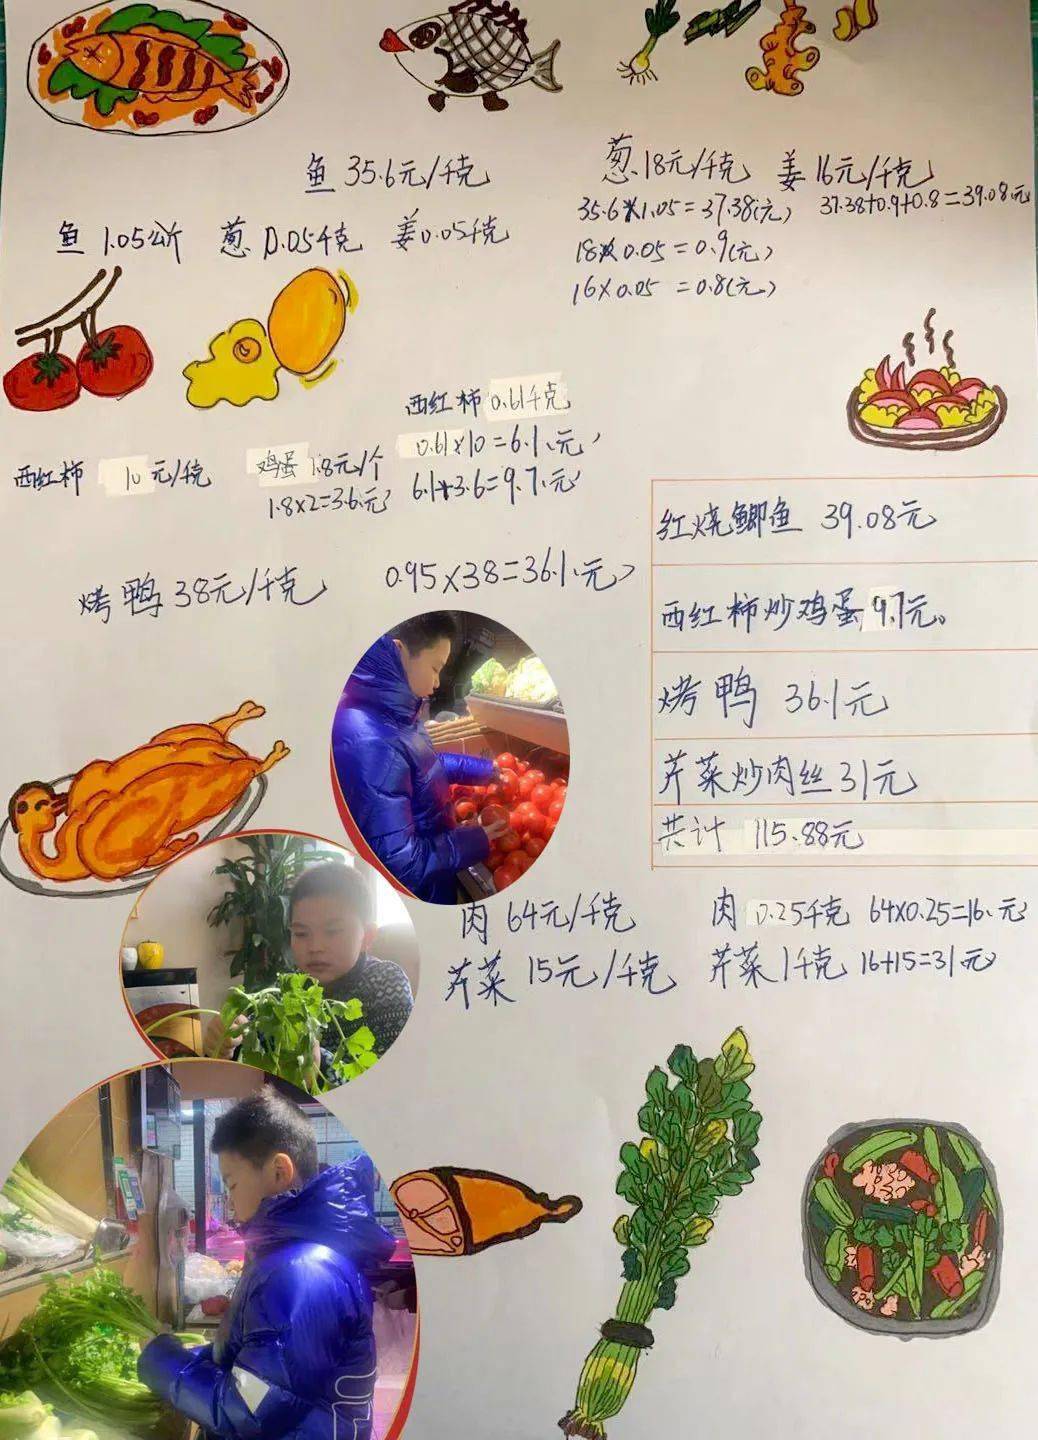 鱼 35.6元/千克
葱 18元/千克 姜 16元/千克
35.6×1.05=37.38(元) 37.38+0.9+0.8=39.08元
鱼 1.05公斤 葱 0.05千克 姜 0.05千克
18×0.05=0.9(元)
16×0.05=0.8(元)
西红柿 0.61千克
西红柿 10元/千克 鸡蛋 1.8元/个 0.61×10=6.1(元)
1.8×2=3.6(元) 6.1+3.6=9.7(元)
烤鸭 38元/千克 0.95×38=36.1(元)
红烧鲫鱼 39.08元
西红柿炒鸡蛋 9.7元。
烤鸭 36.1元
芹菜炒肉丝 31元
共计 115.88元
肉 64元/千克 肉 0.25千克 64×0.25=16(元)
芹菜 15元/千克 芹菜 1千克 16+15=31(元)